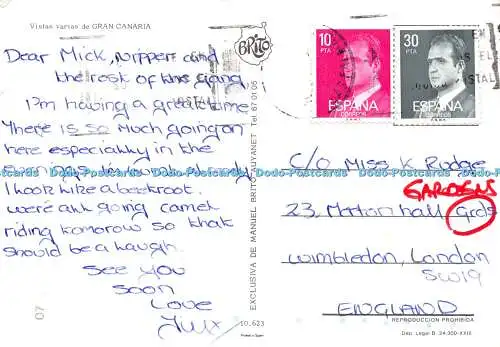 Vistas varias de GRAN CANARIA
Dear Mick, Nipper and
the rest of the gang
I'm having a great time
There is so much going on
here especially in the
I look like a beetroot.
were all going camel
riding tomorow so that
should be a laugh.
See you
Soon
Love
07
BRITO
EXCLUSIVA DE MANUEL BRITO AUYANET Tel. 67 01 05
10.623
Printed in Spain
10
PTA
ESPAÑA
CORREOS
30
PTA
ESPAÑA
CORREOS
C/o Miss K Rudge
GARDENS
23, Mortonhall Grds
Wimbledon, London
SW19
ENGLAND
REPRODUCCION PROHIBIDA
Dep. Legal B. 24.300-XXIX
Dodo-Postcards Dodo-Postcards Dodo-Postcards Dodo-Postcards Dodo-Postcards